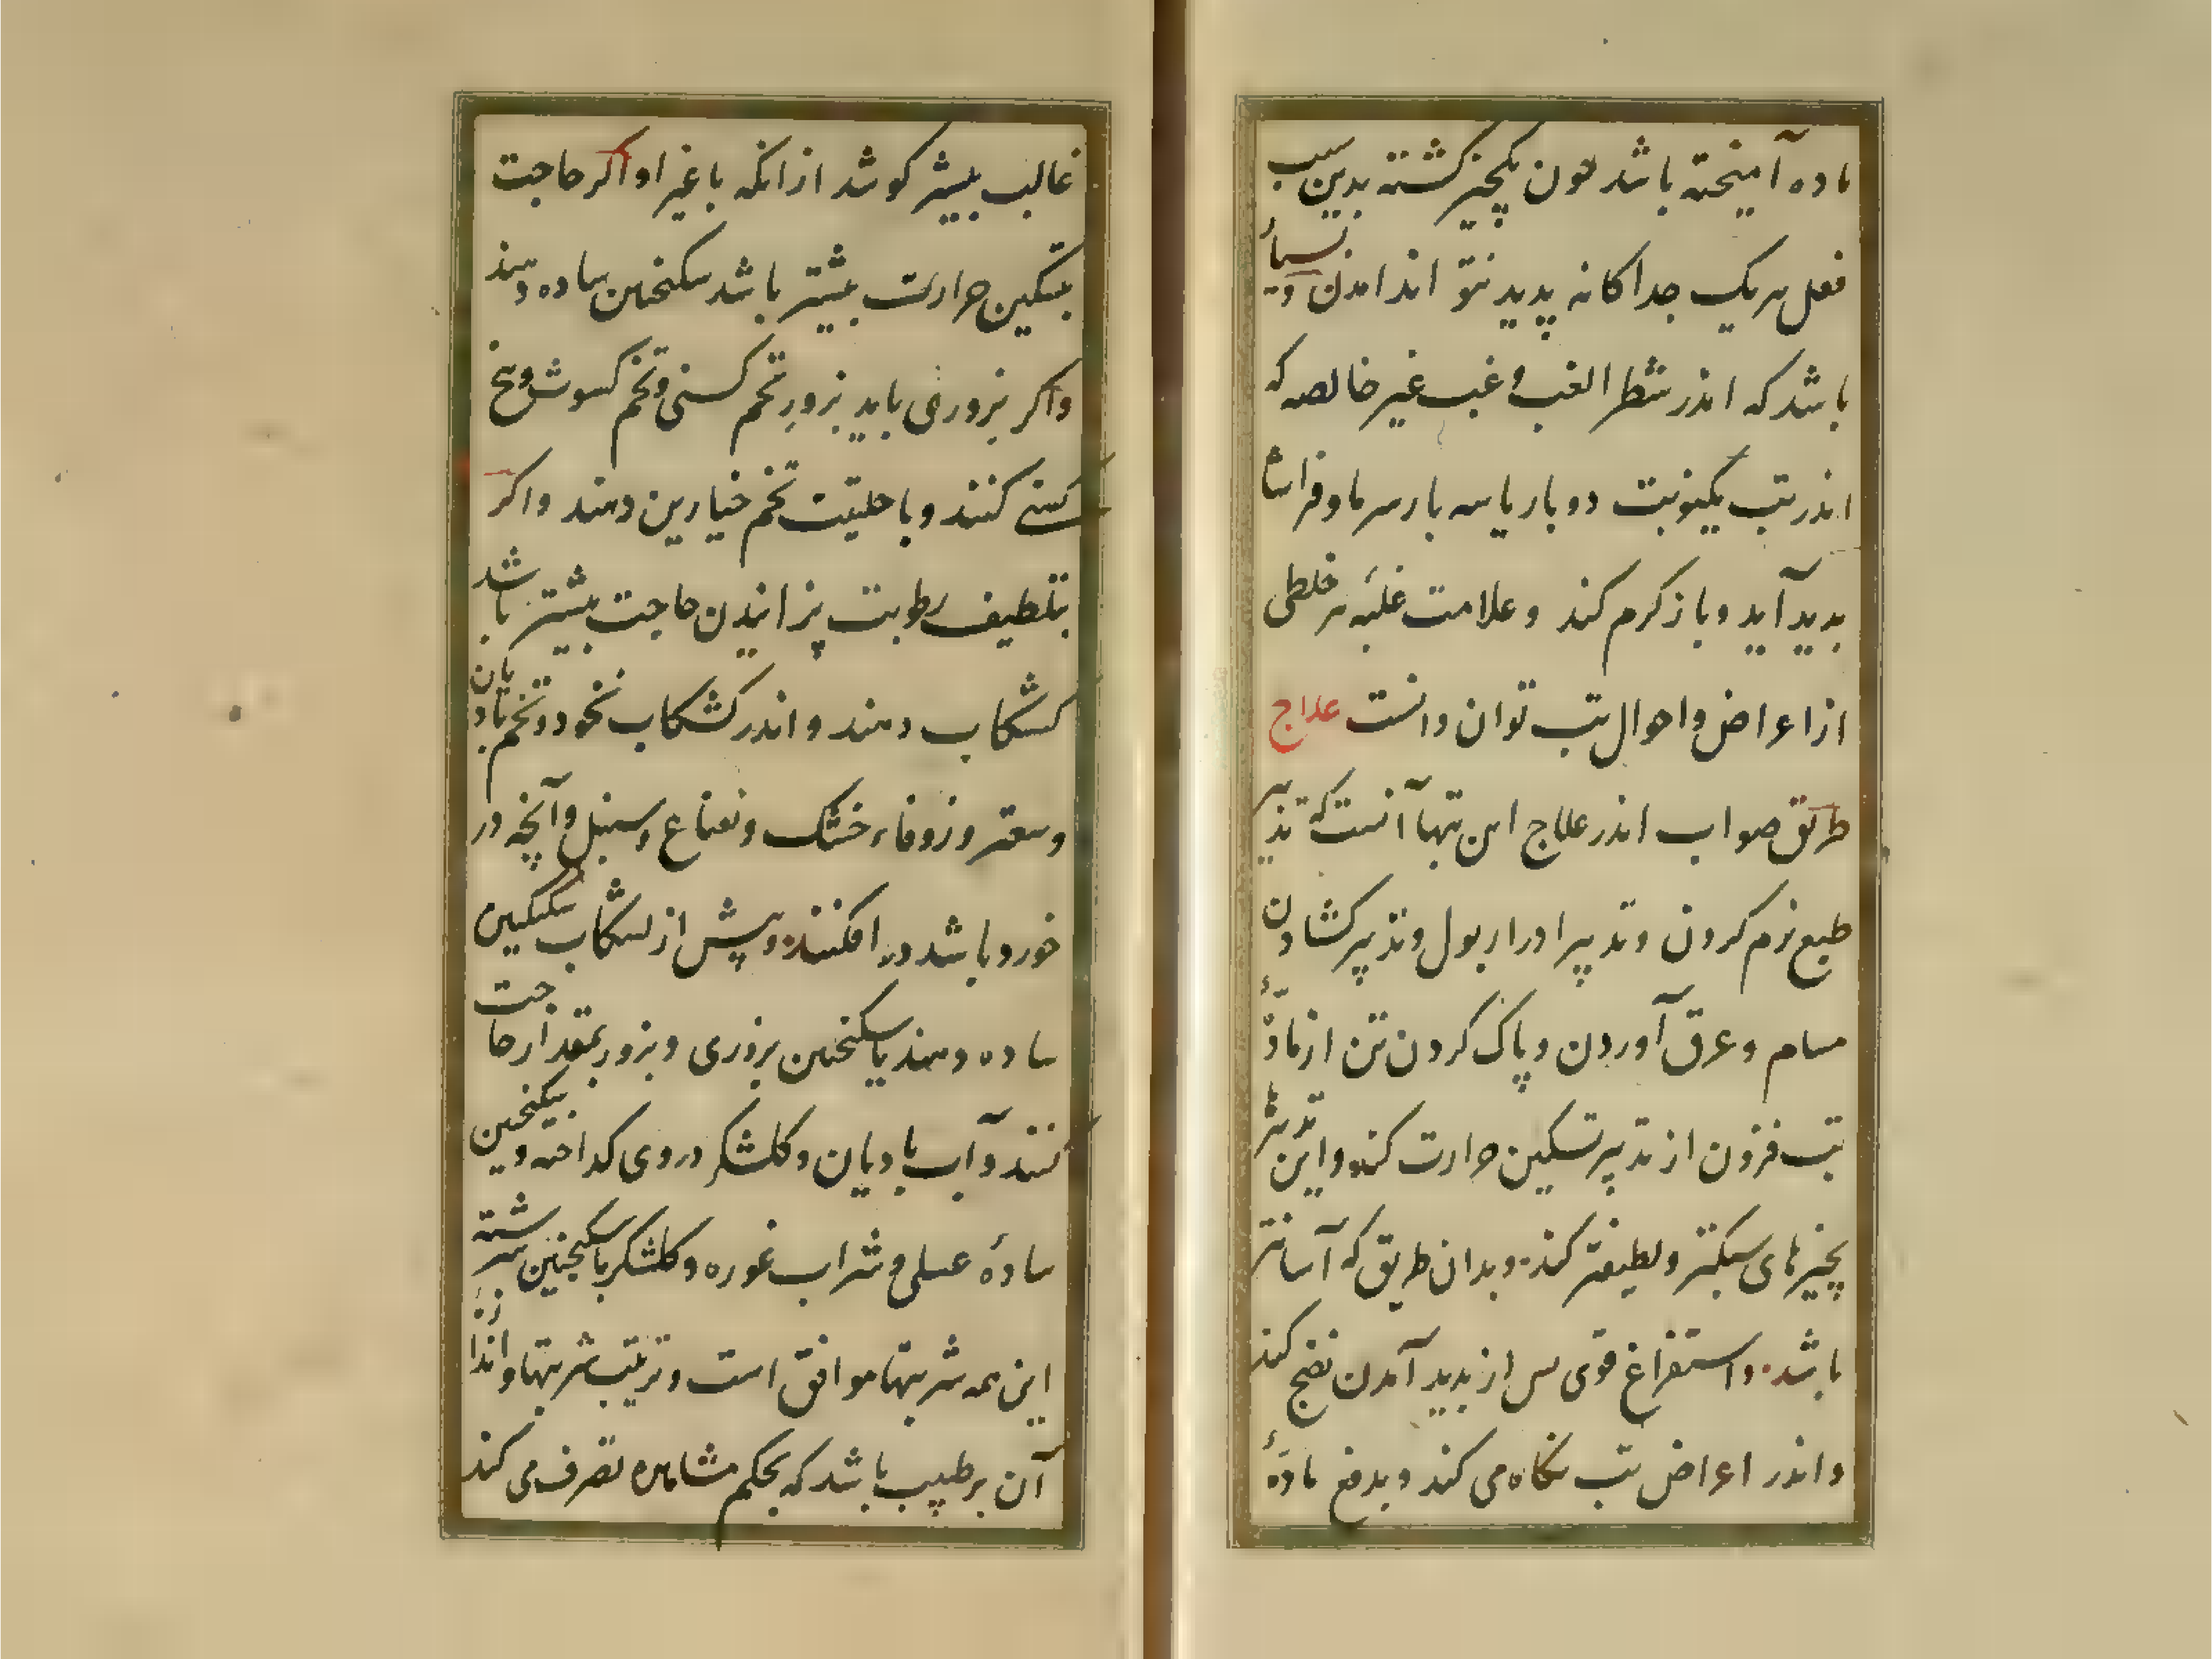 ماده آمیخته باشد چون یکچیز کشته بدین سبب
فعل هر یک جداکانه پدید نتواند امدن و بسیار
باشد که اندر شطر الغب و غب غیر خالصه که
اندر تب یکنوبت دو بار یا سه بار سرما و فراشا
بدید آید و باز کرم کند و علامت غلبهٔ هر خلطی
از اعراض و احوال تب توان دانست علاج
طریق صواب اندر علاج این تبها آنست که تدبیر
طبع نرم کردن و تدبیر ادرار بول و تدبیر کشادن
مسام و عرق آوردن و پاک کردن تن از مادّهٔ
تب فزون از تدبیر تسکین حرارت کند و این تدبیرها
بچیزهای سبکتر و لطیفتر کند و بدان طریق که آسانتر
باشد و استفراغ قوی پس از بدید آمدن نضج کند
و اندر اعراض تب نکاه می کند و بدفع مادّهٔ
غالب بیشتر کوشد از انکه با غیر او اکر حاجت
بتسکین حرارت بیشتر باشد سکنجبین ساده دهند
واکر بزوری باید بزور تخم کسنی و تخم کسوش و بیخ
کسنی کنند و با حلتیت تخم خیارین دهند واکر
بتلطیف رطوبت پزانیدن حاجت بیشتر باشد
کشکاب دهند و اندر کشکاب نخود و تخم بادیان
و سعتر و زوفاء خشک و نعناع و سنبل و آنچه در
خورد باشد در افکنند و پیش از کشکاب سکنکبین
ساده دهند یا سکنجبین بزوری و بزور بمقدار حاجت
کنند و آب بادیان و کلشکر در وی کداخته و سکنجبین
سادهٔ عسلی و شراب غوره و کلشکر با سکنجبین سرشته
این همه شربتها موافق است و ترتیب شربتها و اندازهٔ
آن بر طبیب باشد که بحکم مشاهده تصرف می کند